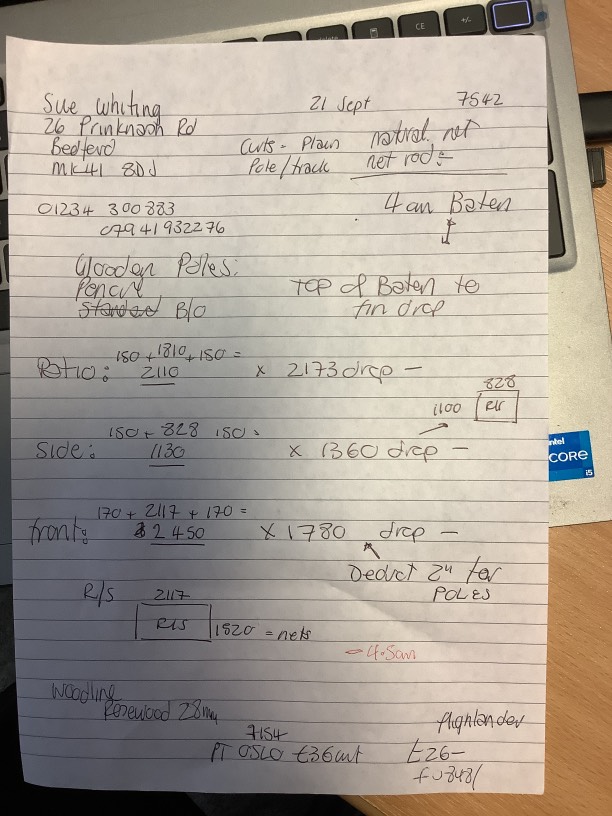 Sue Whiting 21 Sept 7542
26 Prinknash Rd
Bedford Curts - Plain natural net
MK41 8DJ Pole/track net rod :-
01234 300883 4 cm Baten
07941932276
Wooden Poles:
Pencil TOP of Baten to
standed B/O fin drop
150 + 1810 + 150 =
Patio: 2110 x 2173 drop -
828
1100 R/S
150 + 828 150 =
Side: 1130 x 1360 drop -
170 + 2117 + 170 =
front: 2450 x 1780 drop -
Deduct 2" for
POLES
R/S 2117
R/S 1520 = nets
- 4.5cm
Woodline
Rosewood 28mm Highlander
7154
PT OSLO £36 mt £26-
CE
+/-
intel
CORE
i5